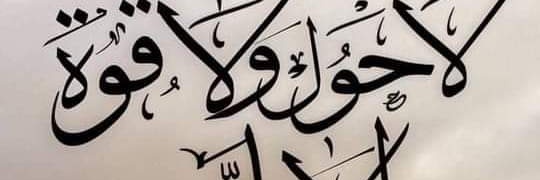 لَا حَوْلَ وَلَا قُوَّةَ